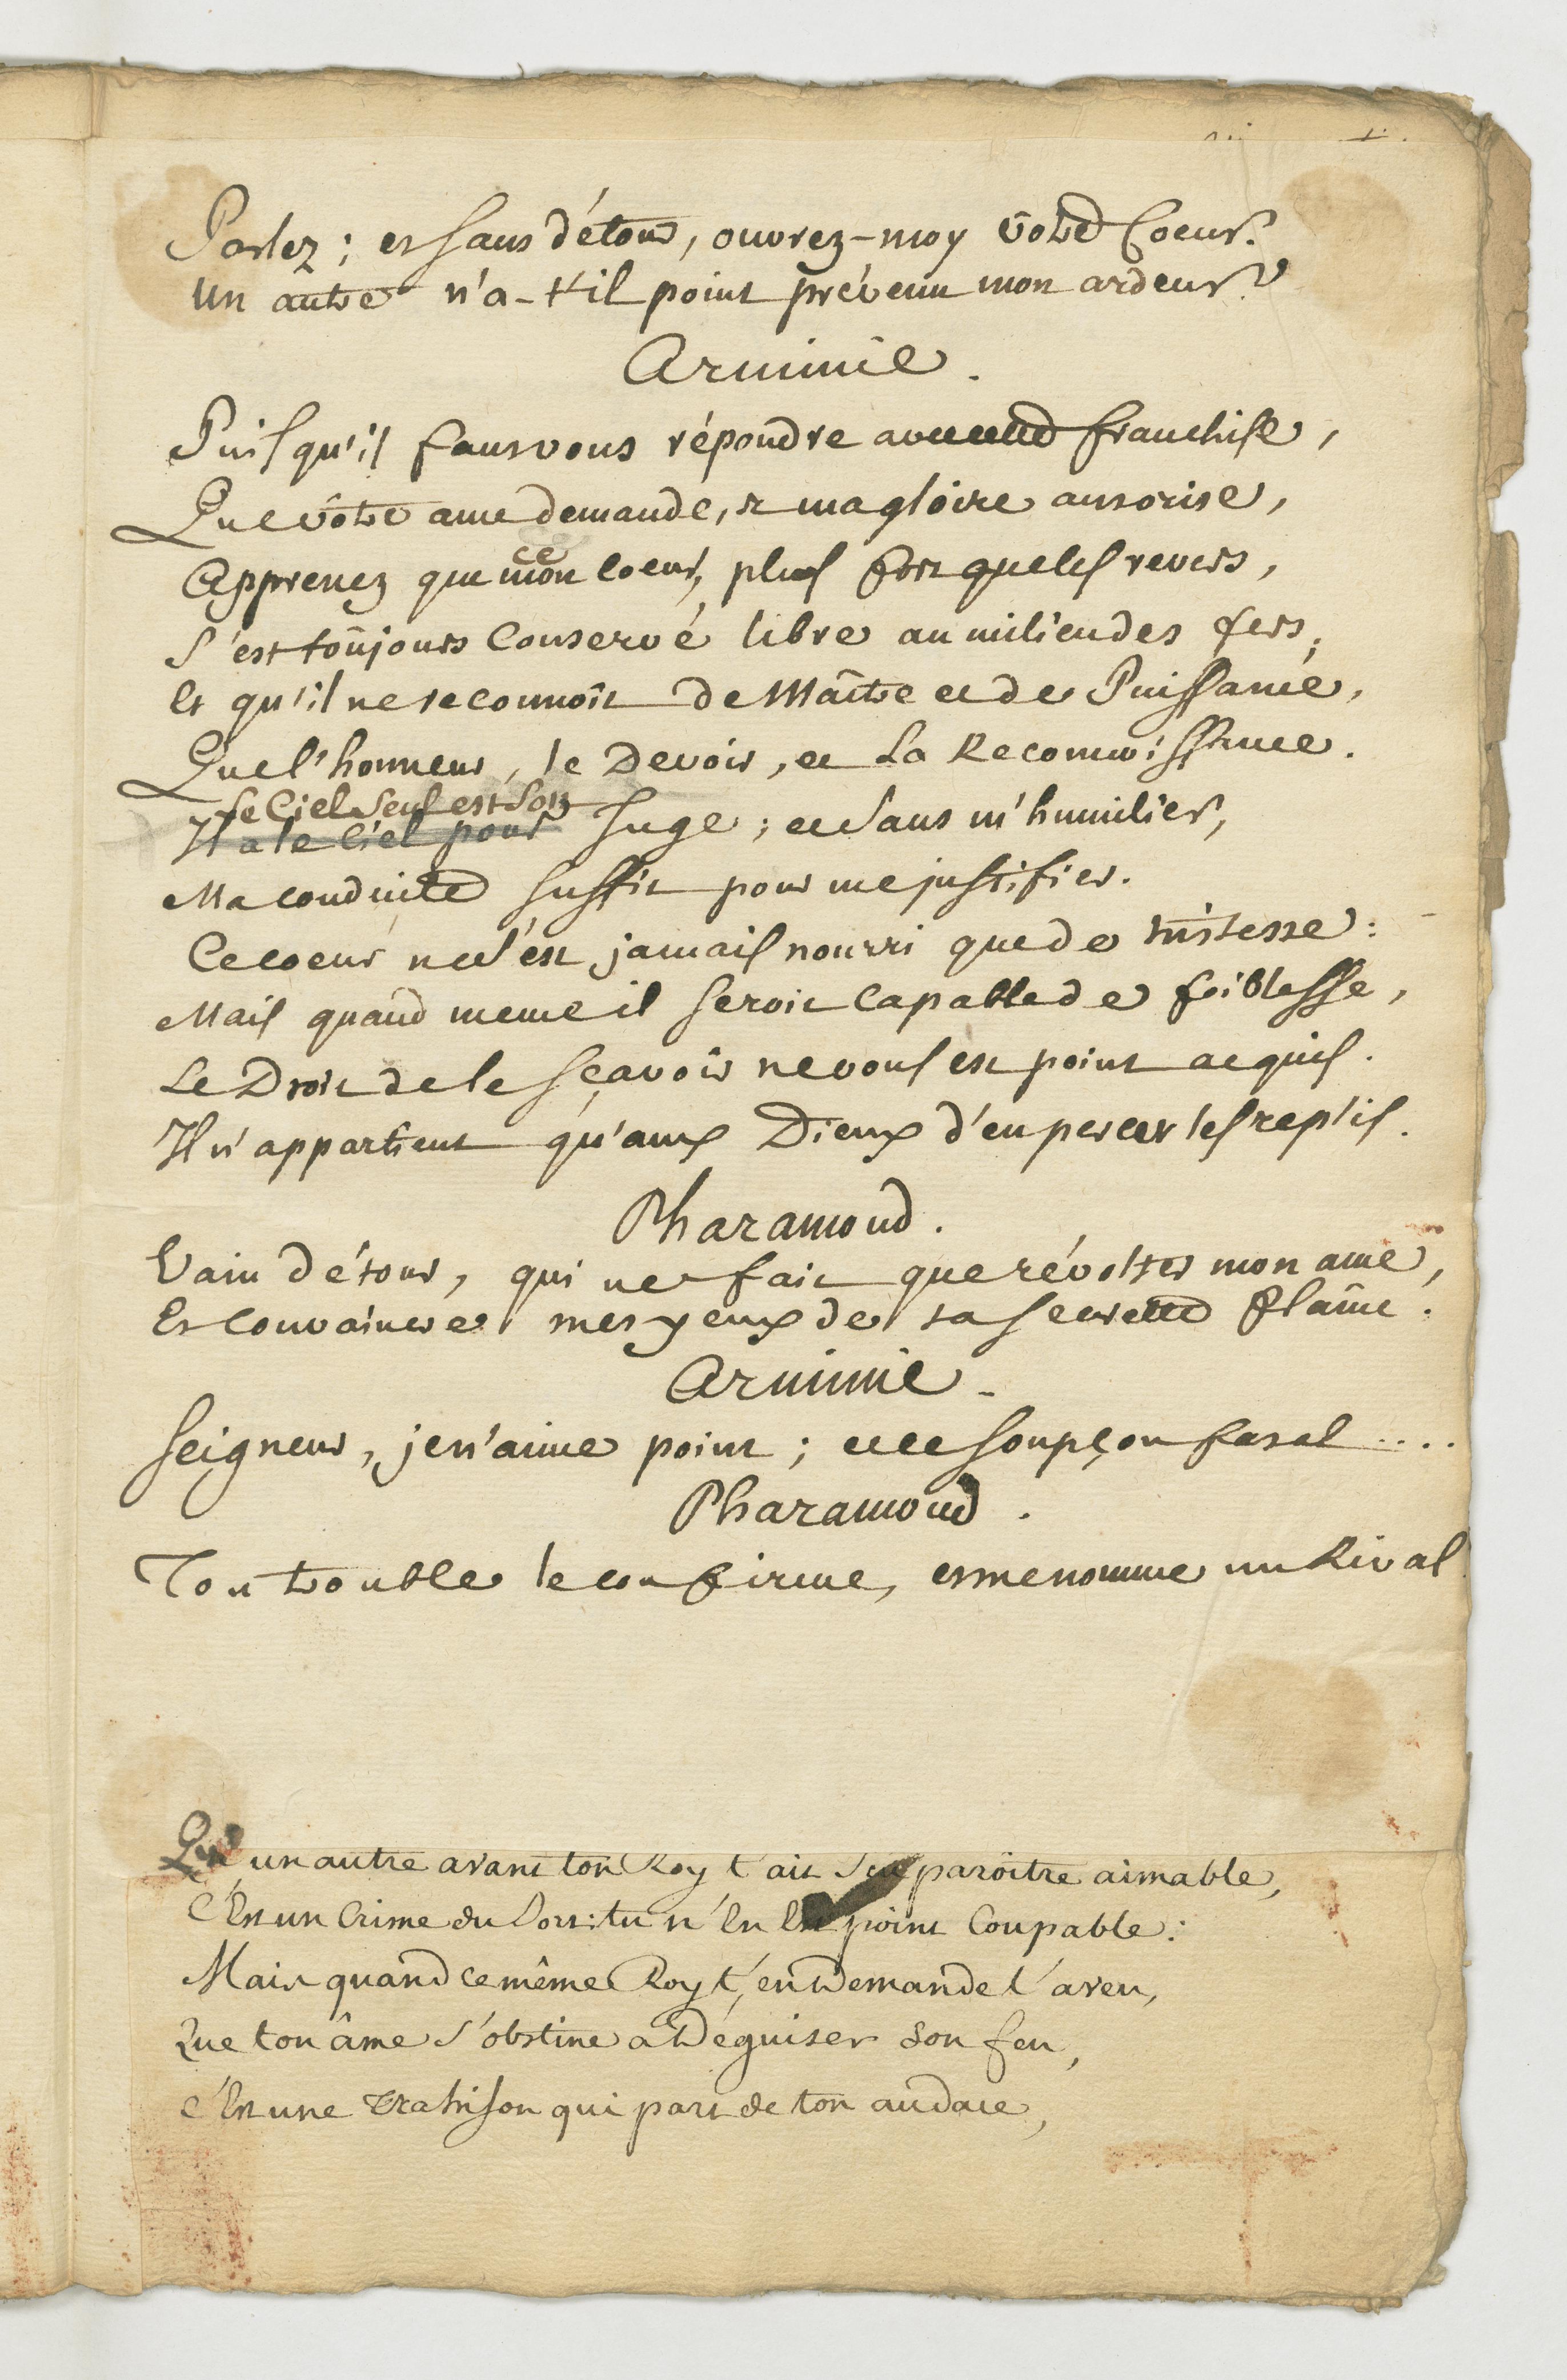 Parlez ; et sans détour, ouvrez-moy vôtre Coeur.
Un autre n'a-t-il point prévenu mon ardeur ?
Arminie.
Puisqu'il faut vous répondre avec cette franchise,
Que vôtre ame demande, & ma gloire autorise,
Apprenez que ce mon coeur, plus fort que les revers,
S'est toûjours Conservé libre au milieu des fers,
Et qu'il ne reconnoît de Maître et de Puissance,
Que l'honneur, le Devoir, et La Reconnoissance.
Le Ciel seul est son
Il a le Ciel pour Juge ; et sans m'humilier,
Ma conduite suffit pour me justifier.
Ce coeur ne s'est jamais nourri que de tristesse :
Mais quand meme il seroit capable de foiblesse,
Le Droit de le sçavoir ne vous est point acquis.
Il n'appartient qu'aux Dieux d'en percer les replis.
Pharamond.
Vain détour, qui ne fait que révolter mon ame,
Et Convaincre mes yeux de ta secrette flâme.
Arminie.
Seigneur, je n'aime point ; et ce soupçon fatal ....
Pharamond.
Ton trouble le confirme, et me nomme un Rival
Qu'un autre avant ton Roy t'ait sçu paroître aimable,
C'Est un Crime du Sort : tu n'En Es point Coupable :
Mais quand ce même Roy t'en Demande l'aveu,
Que ton âme s'obstine a Déguiser son feu,
C'Est une trahison qui part de ton audace,